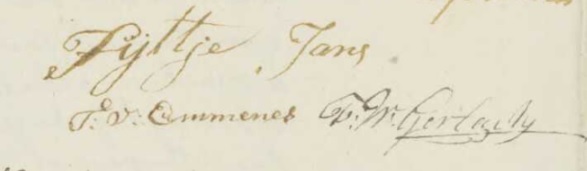 Fijttje Jans
T: V: Emmenes F: W: Gerlach